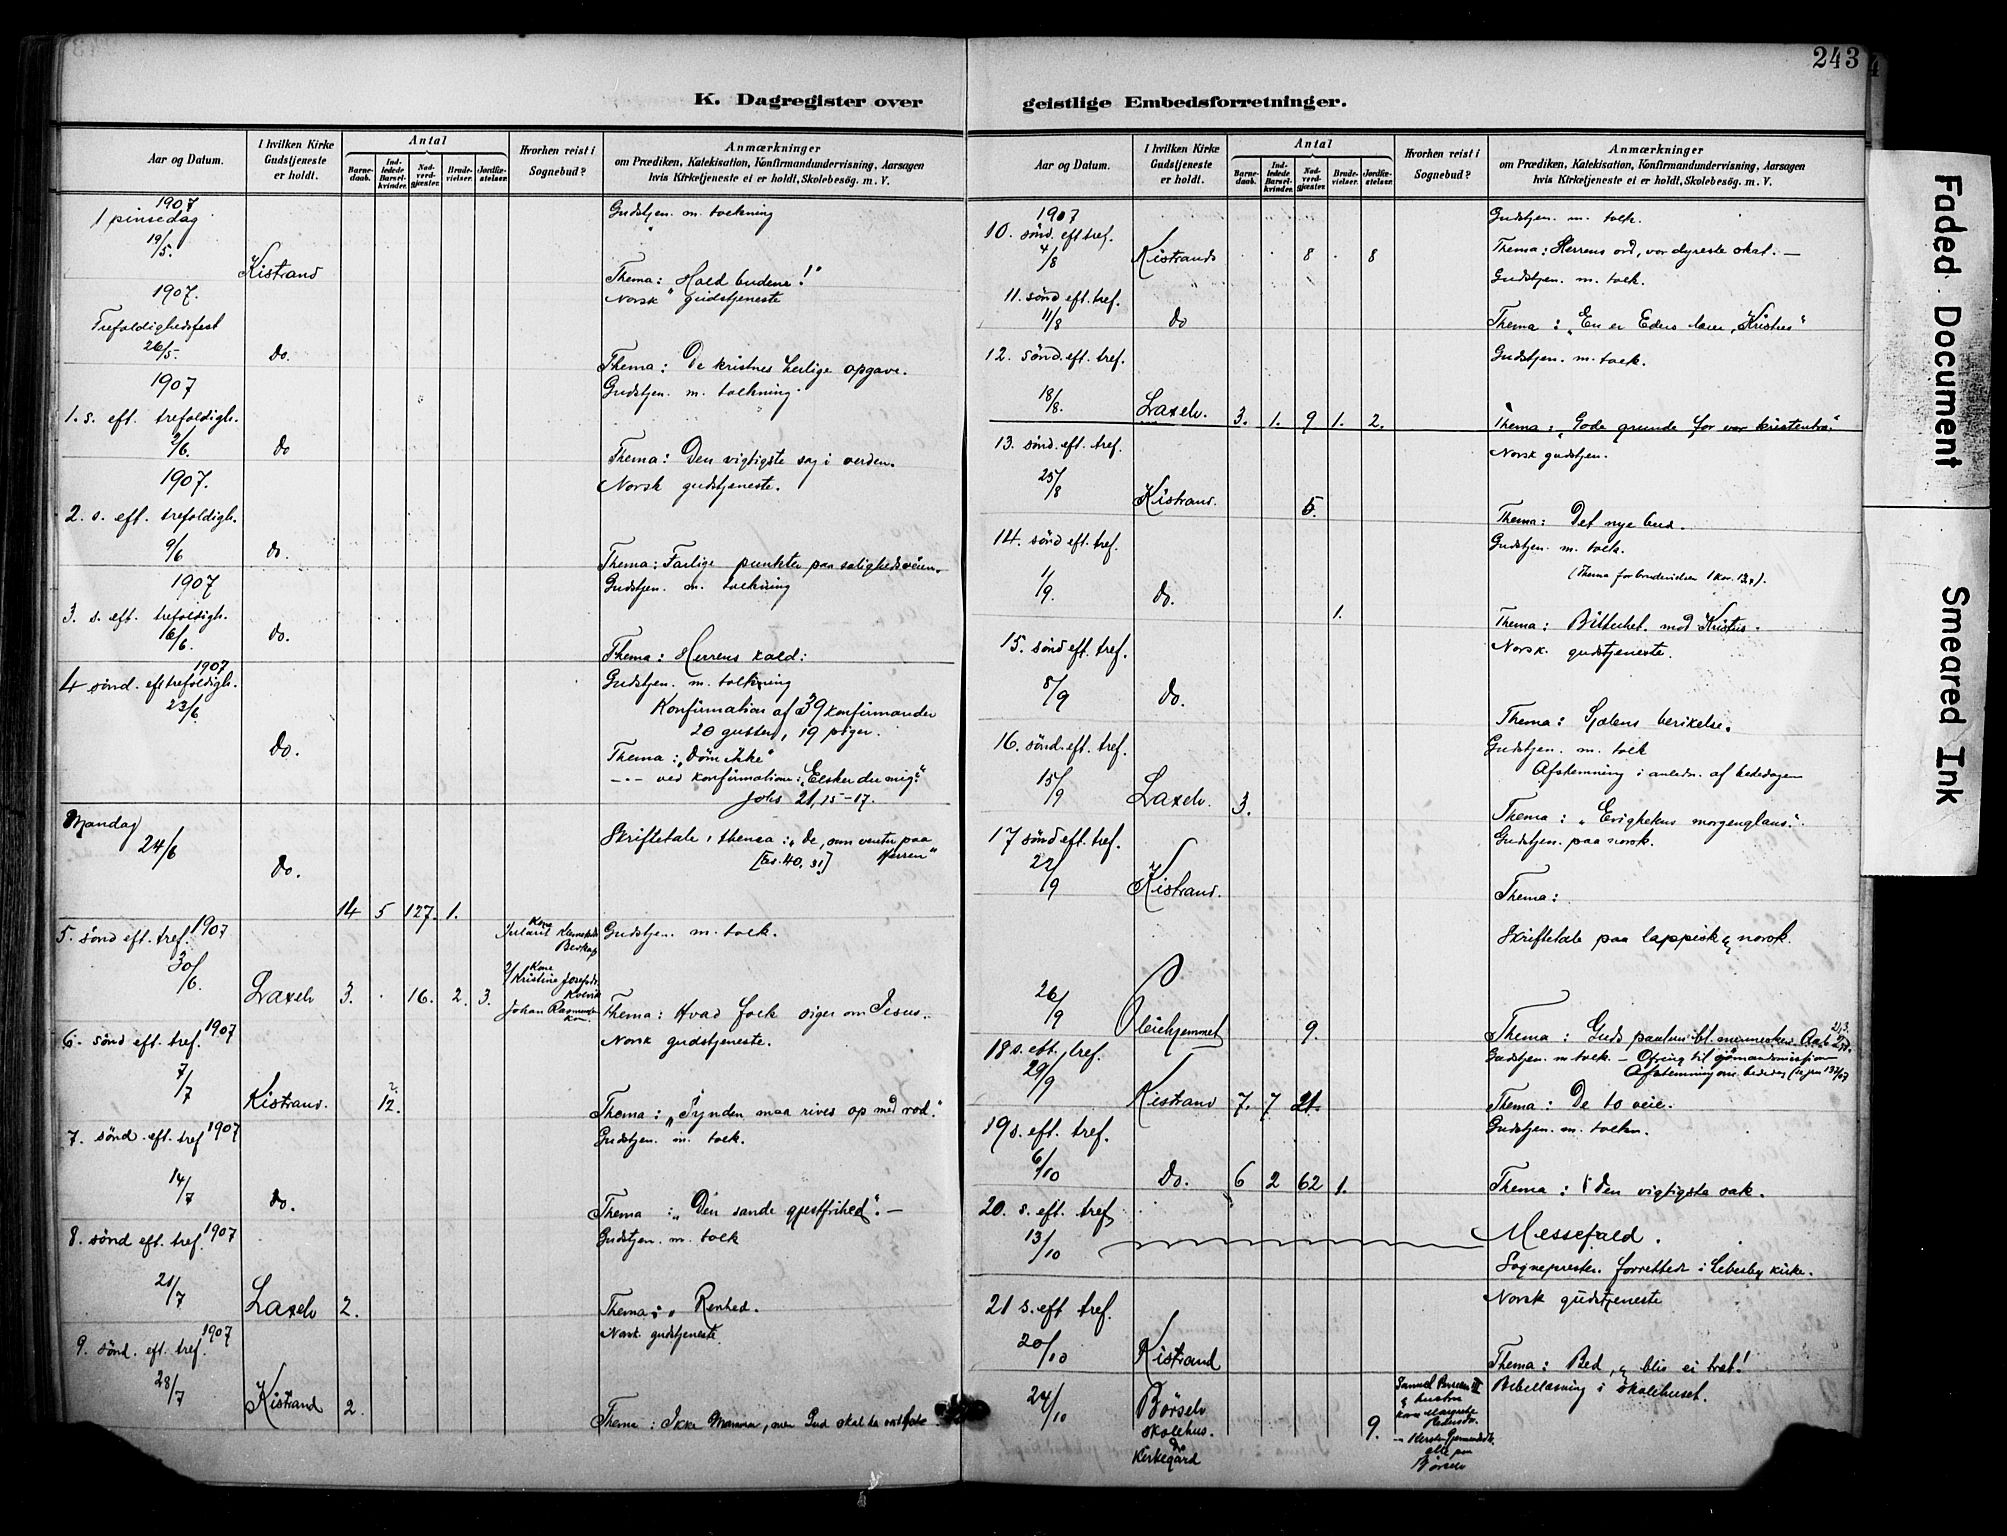 243
K. Dagregister over geistlige Embedsforretninger.
Aar og Datum.
I hvilken Kirke Gudstjeneste er holdt.
Antal
Barnedaab.
Indledede Barselkvinder.
Nadverdgjæster.
Brudevielser.
Jordfæstelser.
Hvorhen reist i Sognebud?
Anmærkninger
om Prædiken, Katekisation, Konfirmandundervisning, Aarsagen
hvis Kirketjeneste ei er holdt, Skolebesög. m. V.
1907
1 pinsedag
19/5.
Kistrand
Gudstjen. m. tolkning
Thema: "Hold budene!"
1907.
Trefoldighedsfest
26/5.
do.
Norsk gudstjeneste
Thema: De kristnes herlige opgave.
1907
1. s. eft. trefoldigh.
2/6.
do
Gudstjen. m. tolkning
Thema: Den vigtigste sag i verden.
1907.
2. s. eft. trefoldigh.
9/6
do.
Norsk gudstjeneste.
Thema: Farlige punkter paa salighedsveien.
1907
3. s. eft. trefoldigh.
16/6.
do.
Gudstjen. m. tolkning
Thema: Herrens kald:
1907
4 sönd. eft trefoldigh.
23/6.
do.
Gudstjen. m. tolkning
Konfirmation af 39 konfirmander
20 gutter, 19 piger.
Thema: "Döm ikke"
-"- ved konfirmation: "Elsker du mig?"
Johs 21, 15-17.
Mandag
24/6
do.
14 5 127. 1.
Skriftetale, thema: "De, som venter paa
[Es. 40, 31] Herren"
5. sönd eft. tref. 1907
30/6.
Laxelv 3. . 16. 2. 3.
Kone
Kone
Kristine Josefsdr.
Kolvik
Johan Rasmussen
Gudstjen. m. tolk.
Thema: Hvad folk siger om Jesus.
6. sönd eft. tref. 1907
7/7
Kistrand. 12.
Norsk gudstjeneste.
Thema: "Synden maa rives op med rod."
7. sönd. eft. tref 1907
14/7
do.
Gudstjen. m. tolk.
Thema: "Den sande gjestfrihed". -
8. sönd eft. tref. 1907
21/7
Laxelv 2.
Gudstjen. m. tolk
Thema: Renhed.
9. sönd. eft. tref. 1907
28/7
Kistrand 2.
Norsk gudstjeneste.
Thema: Ikke Mamma, men Gud skal du
K. Dagregister over geistlige Embedsforretninger.
Aar og Datum.
I hvilken Kirke Gudstjeneste er holdt.
Antal
Barnedaab.
Indledede Barselkvinder.
Nadverdgjæster.
Brudevielser.
Jordfæstelser.
Hvorhen reist i Sognebud?
Anmærkninger
om Prædiken, Katekisation, Konfirmandundervisning, Aarsagen
hvis Kirketjeneste ei er holdt, Skolebesög. m. V.
1907
10. sönd. eft tref.
4/8
Kistrand . . 8 . 8
Gudstjen. m. tolk.
Thema: Herrens ord, vor dyreste skat. -
11. sönd eft. tref.
11/8
do
Gudstjen. m. tolk.
Thema: "En er Eders lærer, Kristus"
12. sönd. eft. tref.
18/8.
Laxelv. 3. 1. 9 1. 2.
Gudstjen. m. tolk.
Thema: "Gode grunde for vor kristentro."
13. sönd. eft. tref.
25/8
Kistrand. 5.
Norsk gudstjen.
Thema: Det nye bud.
14. sönd eft. tref.
1/9.
do. 1.
Gudstjen. m. tolk.
(Thema for brudevielsen 1 Kor. 13,).
Thema: Bitterhet mod Kristus.
15. sönd eft. tref.
8/9
do.
Norsk. gudstjeneste.
Thema: Sjælens berikelse.
16. sönd. eft. tref.
15/9
Laxelv. 3.
Gudstjen. m. tolk
Afstemning i anledn. af bededagen
Thema: "Evighetens morgenglans".
17 sönd eft. tref.
22/9
Kistrand.
Gudstjen. paa norsk.
Thema:
Skriftetale paa lappisk & norsk.
26/9
Pleiehjemmet 9.
Thema: Guds bl. menneskene. Aab. 21,3.
18 s. eft. tref.
29/9
Kistrand 7. 7 21.
Gudstjen. m. tolk. - Ofring til sömandsmission
Afstemning om bededag
Thema: De to veie.
19 s. eft. tref.
6/10
do. 6 2 62 1.
Gudstjen. m. tolkn.
Thema: Den vigtigste sak.
20. s. eft. tref
13/10
Messefald.
Sognepresten forrettede i Lebesby kirke.
21 s. eft tref.
20/10
Kistrand
Norsk gudstjeneste
Thema: Bed, & bliv ei træt!
24/10
Börselv
skolehus.
do
Kirkegård
9.
Samuel Persen
& hustru
kone Margrete
Pedersdr.
alle paa
Börselv
Bibellæsning i skolehuset.
Faded Document
Smeared Ink